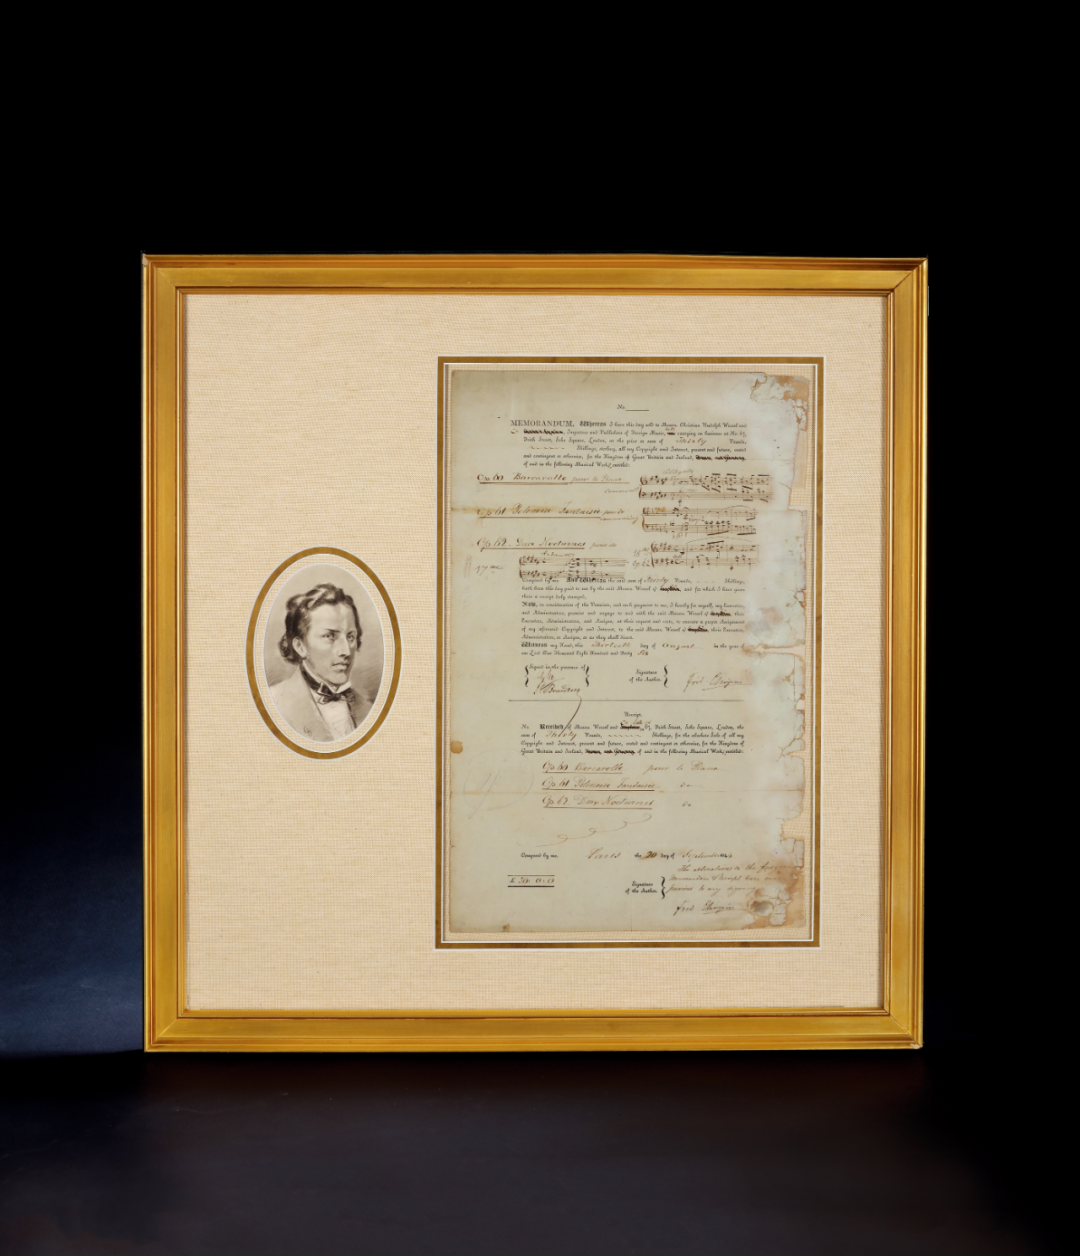 No.
MEMORANDUM, Whereas I have this day sold to Messrs. Christian Rudolph Wessel and
Co Importers and Publishers of Foreign Music, carrying on business at No. 67,
Frith Street, Soho Square, London, at the price or sum of Thirty Pounds,
Shillings, sterling, all my Copyright and Interest, present and future, vested
and contingent or otherwise, for the Kingdom of Great Britain and Ireland,
of and in the following Musical Works, entitled:
Op. 60 Barcarolle pour le Piano
Op. 61 Polonaise Fantaisie pour do
Op. 62 Deux Nocturnes pour do
Composed by me the said sum of Thirty Pounds, Shillings,
hath been this day paid to me by the said Messrs. Wessel &
Now, in consideration of the Premises, and such payment to me, I hereby for myself, my Executors,
and Administrators, promise and engage to and with the said Messrs. Wessel & their
Executors, Administrators, and Assigns, at their request and costs, to execute a proper Assignment
of my aforesaid Copyright and Interest, to the said Messrs. Wessel & their Executors,
Administrators, or Assigns, or as they shall direct.
Witness my Hand, this Thirtieth day of August in the year of
our Lord One Thousand Eight Hundred and Forty Six
Signed in the presence of
Signature
of the Author.
fred Chopin
Receipt.
No. Received of Messrs. Wessel and 67, Frith Street, Soho Square, London, the
sum of Thirty Pounds, Shillings, for the absolute Sale of all my
Copyright and Interest, present and future, vested and contingent or otherwise, for the Kingdom of
Great Britain and Ireland, of and in the following Musical Works, entitled:
Op. 60 Barcarolle pour le Piano
Op. 61 Polonaise Fantaisie do
Op. 62 Deux Nocturnes do
Composed by me. Paris the day of September
The alterations in the
Memorandum & Receipt
previous to my signing
Signature
of the Author.
fred Chopin